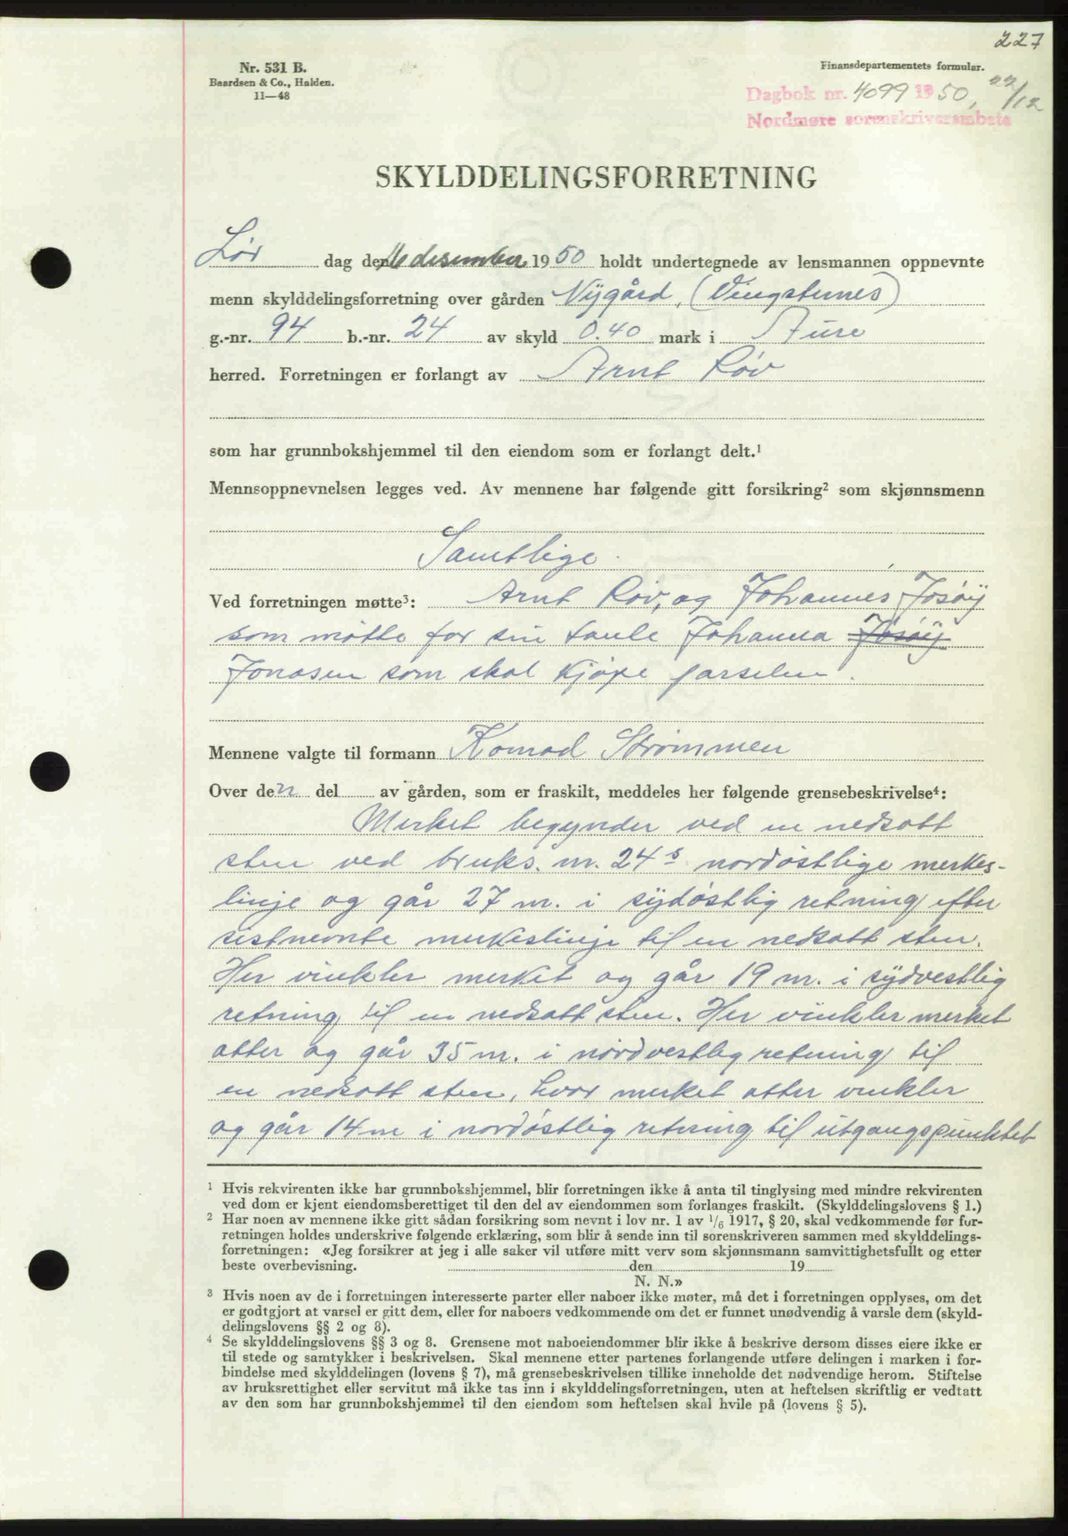 227
Nr. 531 B.
Baardsen & Co., Halden.
11—48
Finansdepartementets formular.
Dagbok nr. 4099 1950, 22/12
Nordmøre sorenskriverambete
SKYLDDELINGSFORRETNING
Lør dag den 16 desember 1950 holdt undertegnede av lensmannen oppnevnte
menn skylddelingsforretning over gården Nygård, (Vingsternes)
g.-nr. 94 b.-nr. 24 av skyld 0.40 mark i Aure
herred. Forretningen er forlangt av Arnt Røv
som har grunnbokshjemmel til den eiendom som er forlangt delt.¹
Mennsoppnevnelsen legges ved. Av mennene har følgende gitt forsikring² som skjønnsmenn
Samtlige.
Ved forretningen møtte³: Arnt Røv, og Johannes Jøsøy
som møtte for sin tante Johanna Jøsøy
Jonasen som skal kjøpe parselen.
Mennene valgte til formann Konrad Strømmen
Over den del av gården, som er fraskilt, meddeles her følgende grensebeskrivelse⁴:
Merket begynder ved en nedsatt
sten ved bruks. nr. 24s nordøstlige merkes-
linje og går 27 m. i sydøstlig retning efter
sistnevnte merkeslinje til en nedsatt sten.
Her vinkler merket og går 19 m. i sydvestlig
retning til en nedsatt sten. Her vinkler merket
atter og går 35 m. i nordvestlig retning til
en nedsatt sten, hvor merket atter vinkler
og går 14 m i nordøstlig retning til utgangspunktet
¹ Hvis rekvirenten ikke har grunnbokshjemmel, blir forretningen ikke å anta til tinglysing med mindre rekvirenten
ved dom er kjent eiendomsberettiget til den del av eiendommen som forlanges fraskilt. (Skylddelingslovens § 1.)
² Har noen av mennene ikke gitt sådan forsikring som nevnt i lov nr. 1 av 1/6 1917, § 20, skal vedkommende før for-
retningen holdes underskrive følgende erklæring, som blir å sende inn til sorenskriveren sammen med skylddelings-
forretningen: «Jeg forsikrer at jeg i alle saker vil utføre mitt verv som skjønnsmann samvittighetsfullt og etter
beste overbevisning. den 19
N. N.»
³ Hvis noen av de i forretningen interesserte parter eller naboer ikke møter, må det i forretningen opplyses, om det
er godtgjort at varsel er gitt dem, eller for naboers vedkommende om det er funnet unødvendig å varsle dem (skyld-
delingslovens §§ 2 og 8).
⁴ Se skylddelingslovens §§ 3 og 8. Grensene mot naboeiendommer blir ikke å beskrive dersom disses eiere ikke er
til stede og samtykker i beskrivelsen. Skal mennene etter partenes forlangende utføre delingen i marken i for-
bindelse med skylddelingen (lovens § 7), må grensebeskrivelsen tillike inneholde det nødvendige herom. Stiftelse
av bruksrettighet eller servitut må ikke tas inn i skylddelingsforretningen, uten at heftelsen skriftlig er vedtatt
av den som har grunnbokshjemmel til den eiendom som heftelsen skal hvile på (lovens § 5).